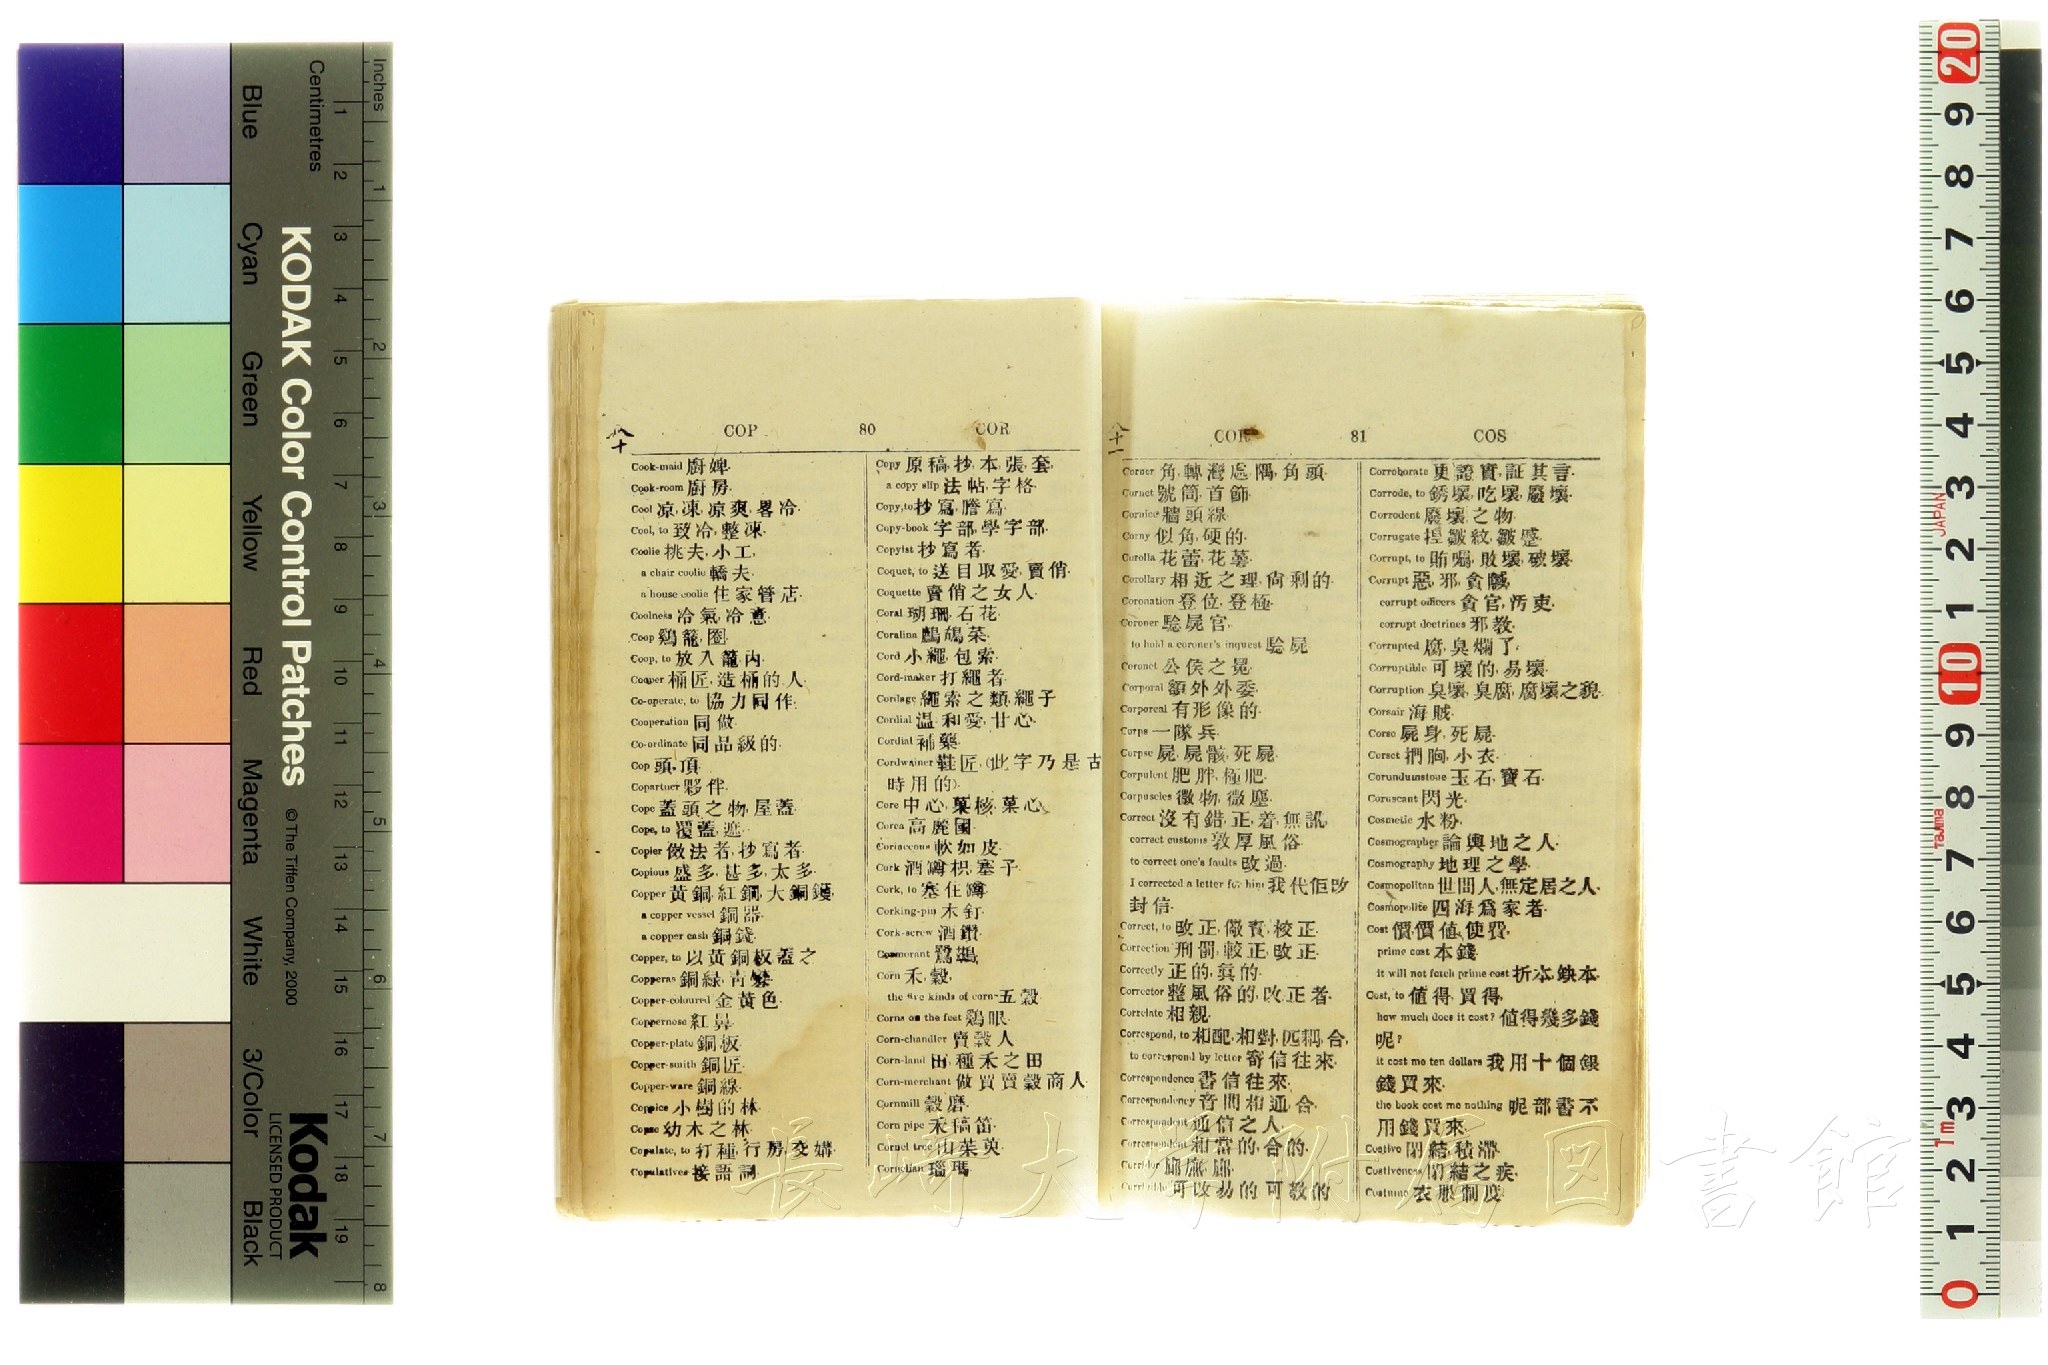 COP 80 COR
八十
Cook-maid 廚婢.
Cook-room 廚房.
Cool 凉,凍,凉爽,畧冷.
Cool, to 致冷,整凍.
Coolie 挑夫,小工,
a chair coolie 轎夫.
a house coolie 住家管店.
Coolness 冷氣,冷意.
Coop 鷄籠,圈.
Coop, to 放入籠內.
Cooper 桶匠,造桶的人.
Co-operate, to 協力同作.
Cooperation 同做.
Co-ordinate 同品級的.
Cop 頭,頂.
Copartner 夥伴.
Cope 蓋頭之物,屋蓋.
Cope, to 覆蓋,遮.
Copier 做法者,抄寫者.
Copious 盛多,甚多,太多.
Copper 黃銅,紅銅,大銅鑊.
a copper vessel 銅器.
a copper cash 銅錢.
Copper, to 以黃銅板蓋之
Copperas 銅緑,靑礬.
Copper-coloured 金黃色.
Coppernose 紅鼻.
Copper-plate 銅板.
Copper-smith 銅匠.
Copper-ware 銅線.
Coppice 小樹的林.
Copse 幼木之林.
Copulate, to 打種,行房,交媾.
Copulatives 接語詞.
Copy 原稿,抄,本,張,套,
a copy slip 法帖,字格.
Copy, to 抄寫,謄寫.
Copy-book 字部,學字部.
Copyist 抄寫者.
Coquet, to 送目取愛,賣俏.
Coquette 賣俏之女人.
Coral 珊瑚,石花.
Coralina 鷓鴣菜.
Cord 小繩,包索.
Cord-maker 打繩者.
Cordage 繩索之類,繩子
Cordial 温和,愛,甘心.
Cordial 補藥.
Cordwainer 鞋匠,(此字乃是古
時用的).
Core 中心,菓核,菓心.
Corea 高麗國.
Coriaceous 軟如皮.
Cork 酒罇枳,塞子.
Cork, to 塞住罇.
Corking-pin 木釘.
Cork-screw 酒鑽.
Cormorant 鷺鷀.
Corn 禾,穀.
the five kinds of corn 五穀.
Corns on the feet 鷄眼.
Corn-chandler 賣穀人
Corn-land 田,種禾之田
Corn-merchant 做買賣穀商人.
Cornmill 穀磨.
Corn pipe 禾稿笛.
Cornel tree 山茱萸.
Cornelian 瑪瑙
COR 81 COS
八十一
Corner 角,轉灣處,隅,角頭.
Cornet 號筒,首飾.
Cornice 牆頭線.
Corny 似角,硬的.
Corolla 花蕾,花萼.
Corollary 相近之理,尙剩的.
Coronation 登位,登極.
Coroner 驗屍官.
to hold a coroner's inquest 驗屍
Coronet 公侯之冕.
Corporal 額外外委.
Corporeal 有形像的.
Corps 一隊兵.
Corpse 屍,屍骸,死屍.
Corpulent 肥胖,極肥.
Corpuscles 微物,微塵.
Correct 沒有錯,正,着,無訛.
correct customs 敦厚風俗.
to correct one's faults 改過.
I corrected a letter for him 我代佢改
封信.
Correct, to 改正,儆責,校正.
Correction 刑罰,較正,改正.
Correctly 正的,眞的.
Corrector 整風俗的,改正者.
Correlate 相親.
Correspond, to 相配,相對,匹稱,合,
to correspond by letter 寄信往來.
Correspondence 書信往來.
Correspondency 音問相通,合.
Correspondent 通信之人.
Correspondent 相當的,合的.
Corridor 廊廡,廊.
可改易的,可教的.
Corroborate 更證實,証其言.
Corrode, to 銹壞,吃壞,廢壞.
Corrodent 廢壞之物.
Corrugate 捏皺紋,皺蹙.
Corrupt, to 賄囑,敗壞,破壞.
Corrupt 惡,邪,貪贓,
corrupt officers 貪官,汚吏.
corrupt doctrines 邪教.
Corrupted 腐,臭爛了.
Corruptible 可壞的,易壞.
Corruption 臭壞,臭腐,腐壞之貌.
Corsair 海賊.
Corse 屍身,死屍.
Corset 捫胸,小衣.
Corundumstone 玉石,寶石.
Coruscant 閃光.
Cosmetic 水粉.
Cosmographer 論輿地之人.
Cosmography 地理之學.
Cosmopolitan 世間人,無定居之人.
Cosmopolite 四海爲家者.
Cost 價,價值,使費.
prime cost 本錢.
it will not fetch prime cost 折本,缺本.
Cost, to 値得,買得,
how much does it cost? 値得幾多錢
呢?
it cost me ten dollars 我用十個銀
錢買來.
the book cost me nothing 呢部書不
用錢買來.
Costive 閉結,積滯.
Costiveness 閉結之疾.
Costume 衣服制度.
長崎大学附属図書館
Inches
Centimetres
KODAK Color Control Patches
© The Tiffen Company, 2000
Kodak
LICENSED PRODUCT
Blue
Cyan
Green
Yellow
Red
Magenta
White
3/Color
Black
1 2 3 4 5 6 7 8 9 10 11 12 13 14 15 16 17 18 19
1 2 3 4 5 6 7 8
20 9 8 7 6 5 4 3 2 1 10 9 8 7 6 5 4 3 2 1 0
JAPAN
Tajima
1m